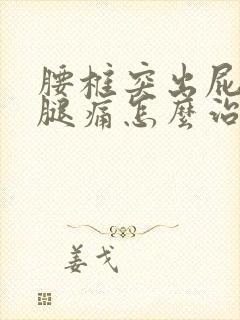 腰柱突出屁
腿痛怎麼治
姜戈